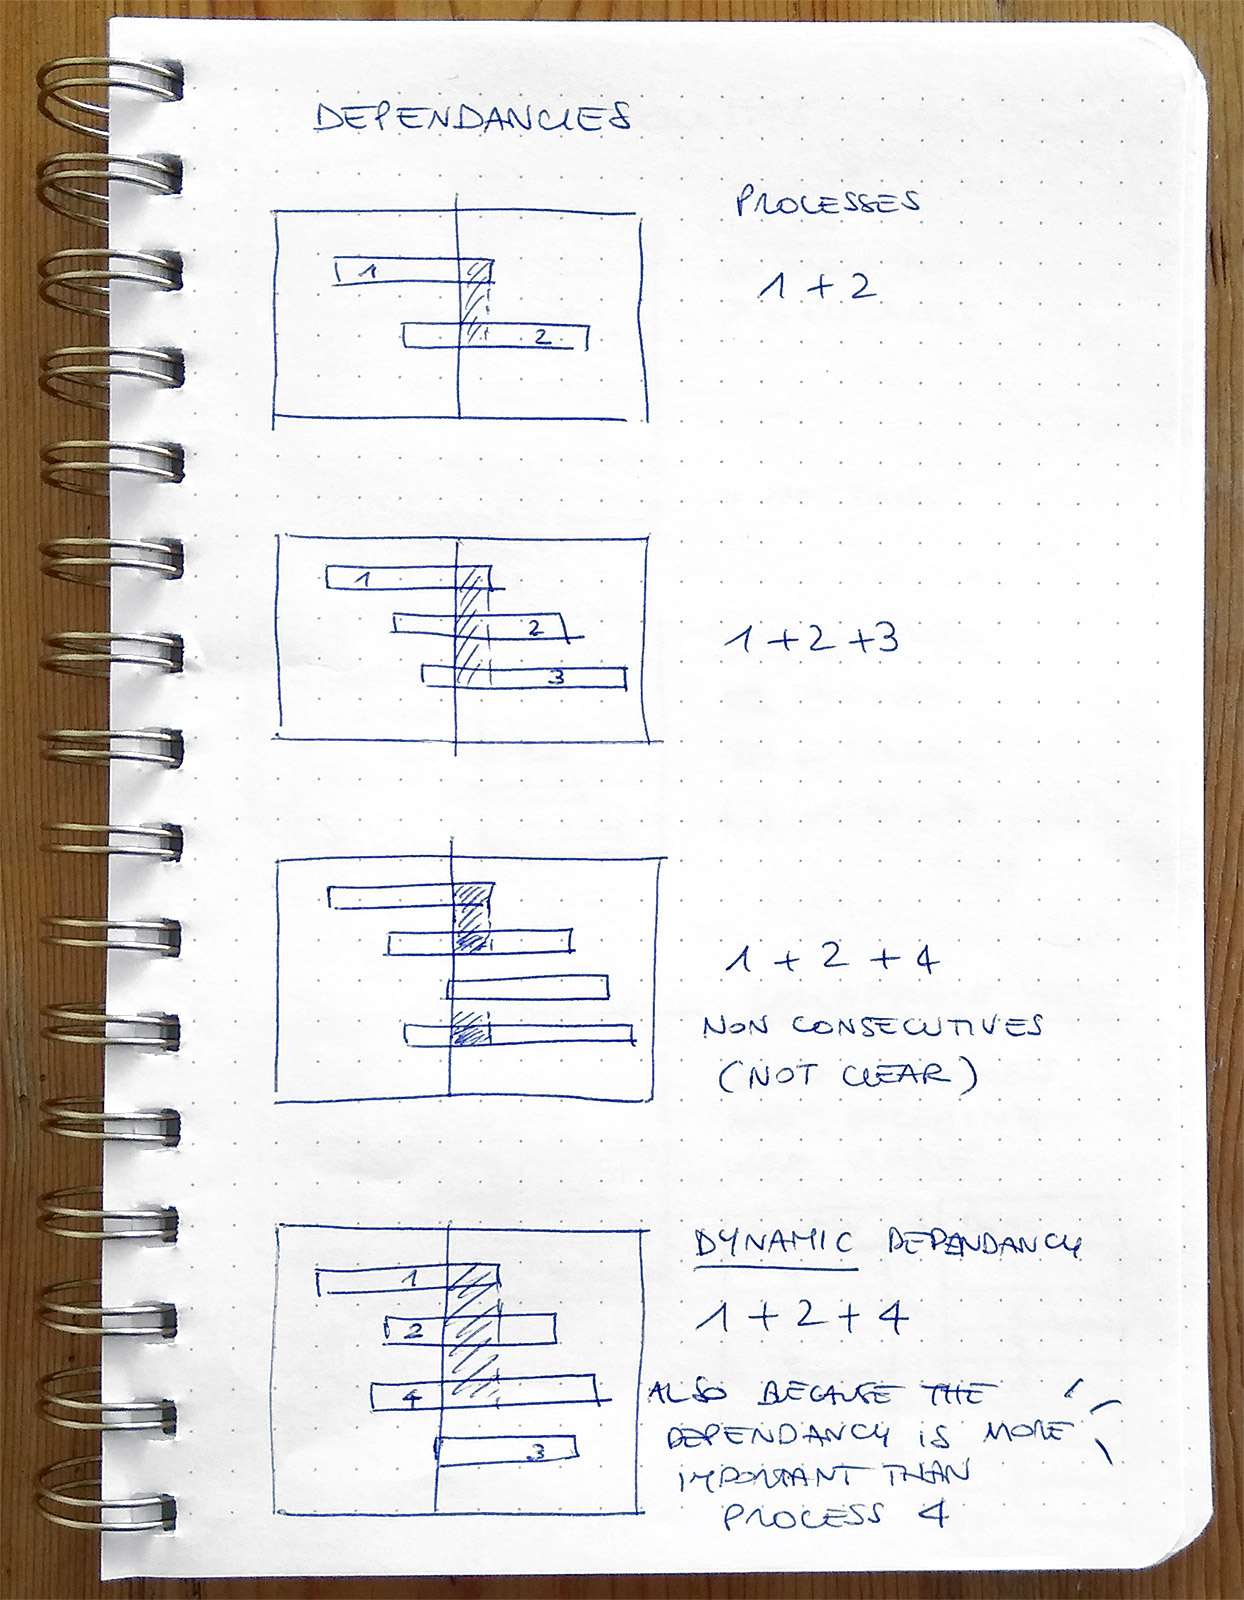 DEPENDANCIES
PROCESSES
1
2
1 + 2
1
2
3
1 + 2 + 3
1 + 2 + 4
NON CONSECUTIVES
(NOT CLEAR)
DYNAMIC DEPENDANCY
1
2
4
3
1 + 2 + 4
ALSO BECAUSE THE
DEPENDANCY IS MORE
IMPORTANT THAN
PROCESS 4